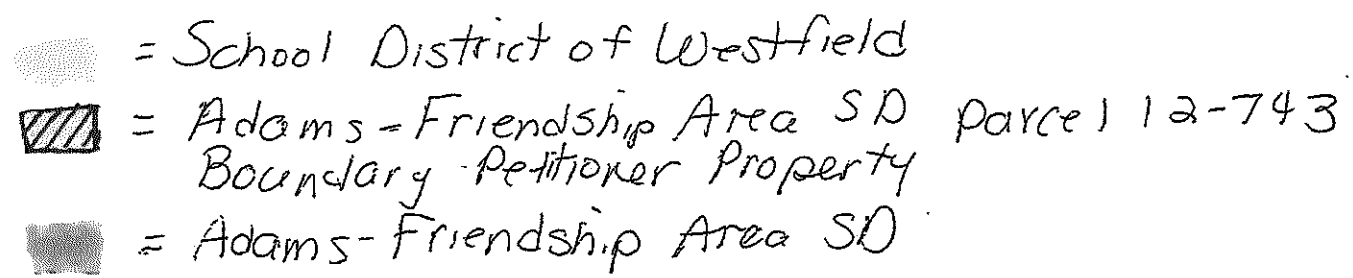 = School District of Westfield
= Adams-Friendship Area SD parcel 12-743
Boundary-Petitioner Property
= Adams-Friendship Area SD